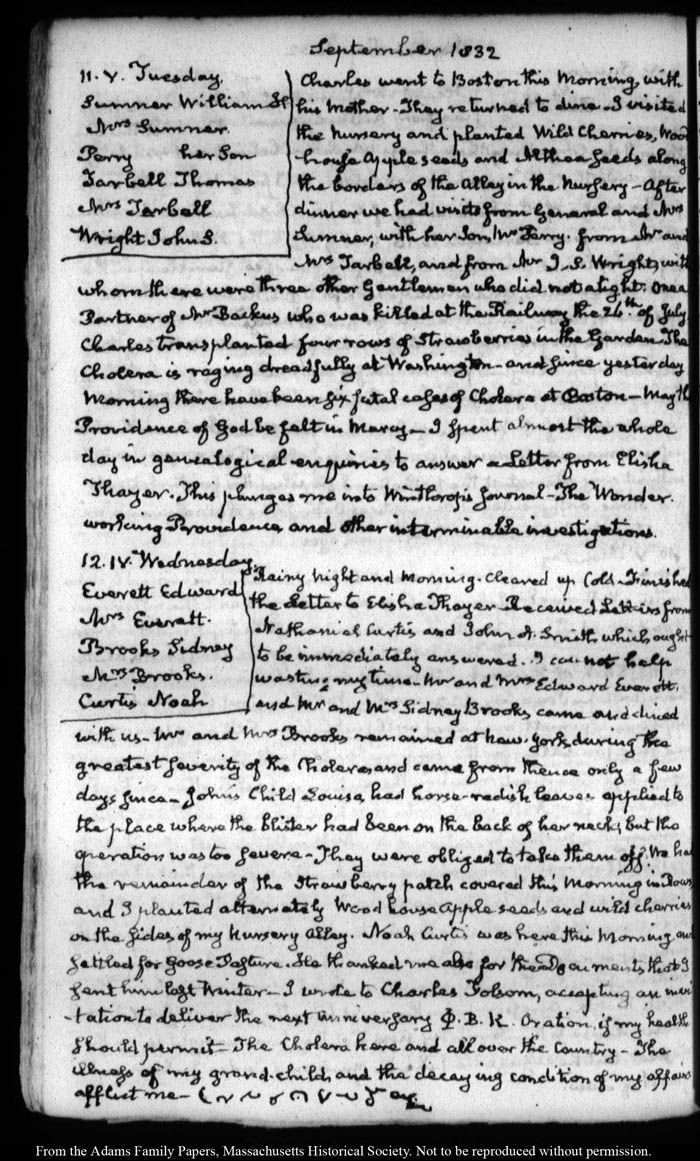 September 1832
11. V. Tuesday.
Sumner William H
Mrs Sumner.
Perry her Son
Tarbell Thomas
Mrs Tarbell
Wright John S.
Charles went to Boston this Morning, with
his Mother - They returned to dine - I visited
the Nursery and planted Wild Cherries, Wood
house Apple seeds and Althea seeds along
the borders of the Alley in the Nursery - After
dinner we had visits from General and Mrs
Sumner, with her Son, Mr Perry. from Mr and
Mrs Tarbell, and from Mr J. S. Wright, with
whom there were three other Gentlemen who did not alight. One a
Partner of Mr Backus who was killed at the Railway the 26th. of July
Charles transplanted four rows of Strawberries in the Garden The
Cholera is raging dreadfully at Washington - and since yesterday
Morning there have been six fatal cases of Cholera at Boston - May th
Providence of God be felt in Mercy - I spent almost the whole
day in genealogical enquiries to answer a Letter from Elisha
Thayer. This plunges me into Winthrop's Journal - The Wonder.
working Providence and other interminable investigations.
12. IV. Wednesday.
Everett Edward
Mrs Everett.
Brooks Sidney
Mrs Brooks.
Curtis Noah
Rainy Night and Morning. Cleared up Cold - Finished
the Letter to Elisha Thayer - Received Letters from
Nathaniel Curtis and John A. Smith which ought
to be immediately answered. I can not help
wasting my time - Mr and Mrs Edward Everett,
and Mr and Mrs Sidney Brooks came and dined
with us - Mr and Mrs Brooks remained at New-York during the
greatest severity of the Cholera, and came from thence only a few
days since - John's Child Louisa, had horse-radish leaves applied to
the place where the blister had been on the back of her neck; but the
operation was too severe - They were obliged to take them off. We had
the remainder of the Strawberry patch covered this Morning in Rows
and I planted alternately Wood house Apple seeds and wild cherries
on the sides of my Nursery Alley. Noah Curtis was here this Morning and
settled for Goose Pasture. He thanked me also for the Documents that I
sent him last Winter - I wrote to Charles Folsom, accepting an invi
-tation to deliver the next anniversary Φ. B. K. Oration, if my health
should permit - The Cholera here and all over the Country - The
illness of my grand-child, and the decaying condition of my affairs
afflict me -
From the Adams Family Papers, Massachusetts Historical Society. Not to be reproduced without permission.